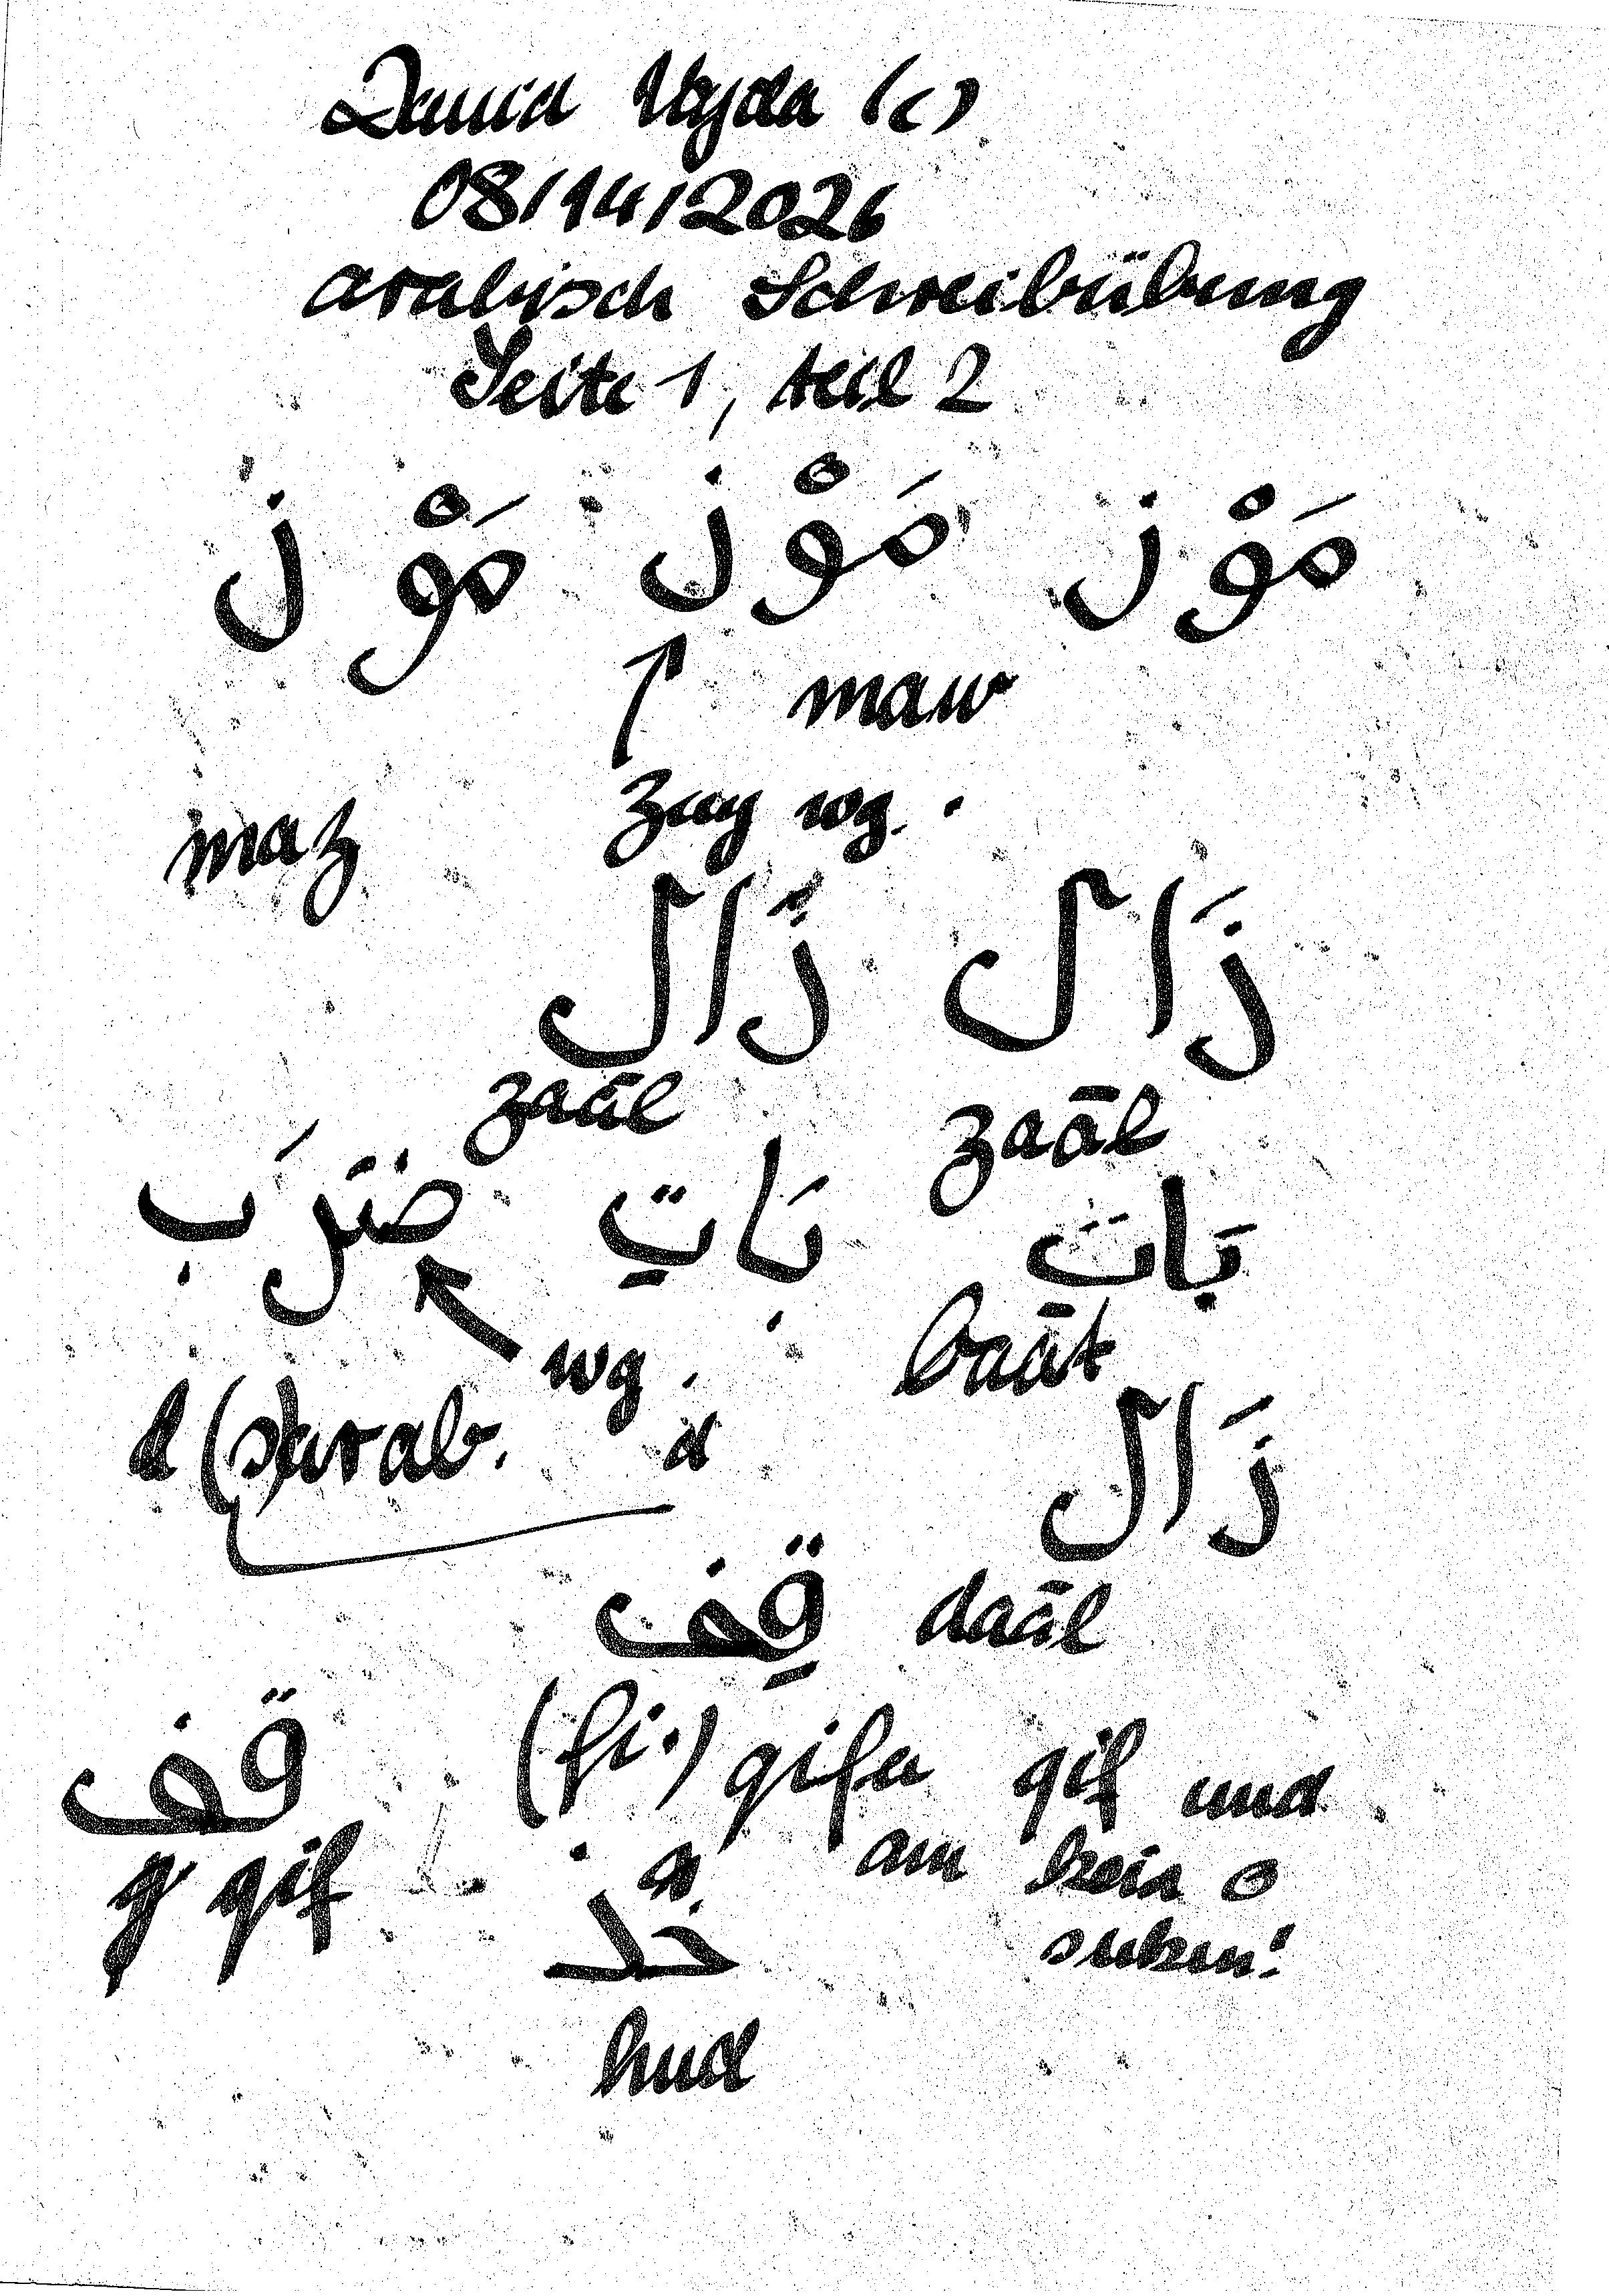 David Vajda (c)
08/14/2026
arabisch Schreibübung
Seite 1, teil 2
مَوْز مَوْز مَوْز
maw
zay wg.
maz
زَال زَال
zaāl zaāl
بَات بَات ضَرَب
wg. baāt
d(s)arab. d
زَال
قِف daāl
(fi.) qifa qif und
قف
am kein o
q qif
sukun!
خُذ
hud